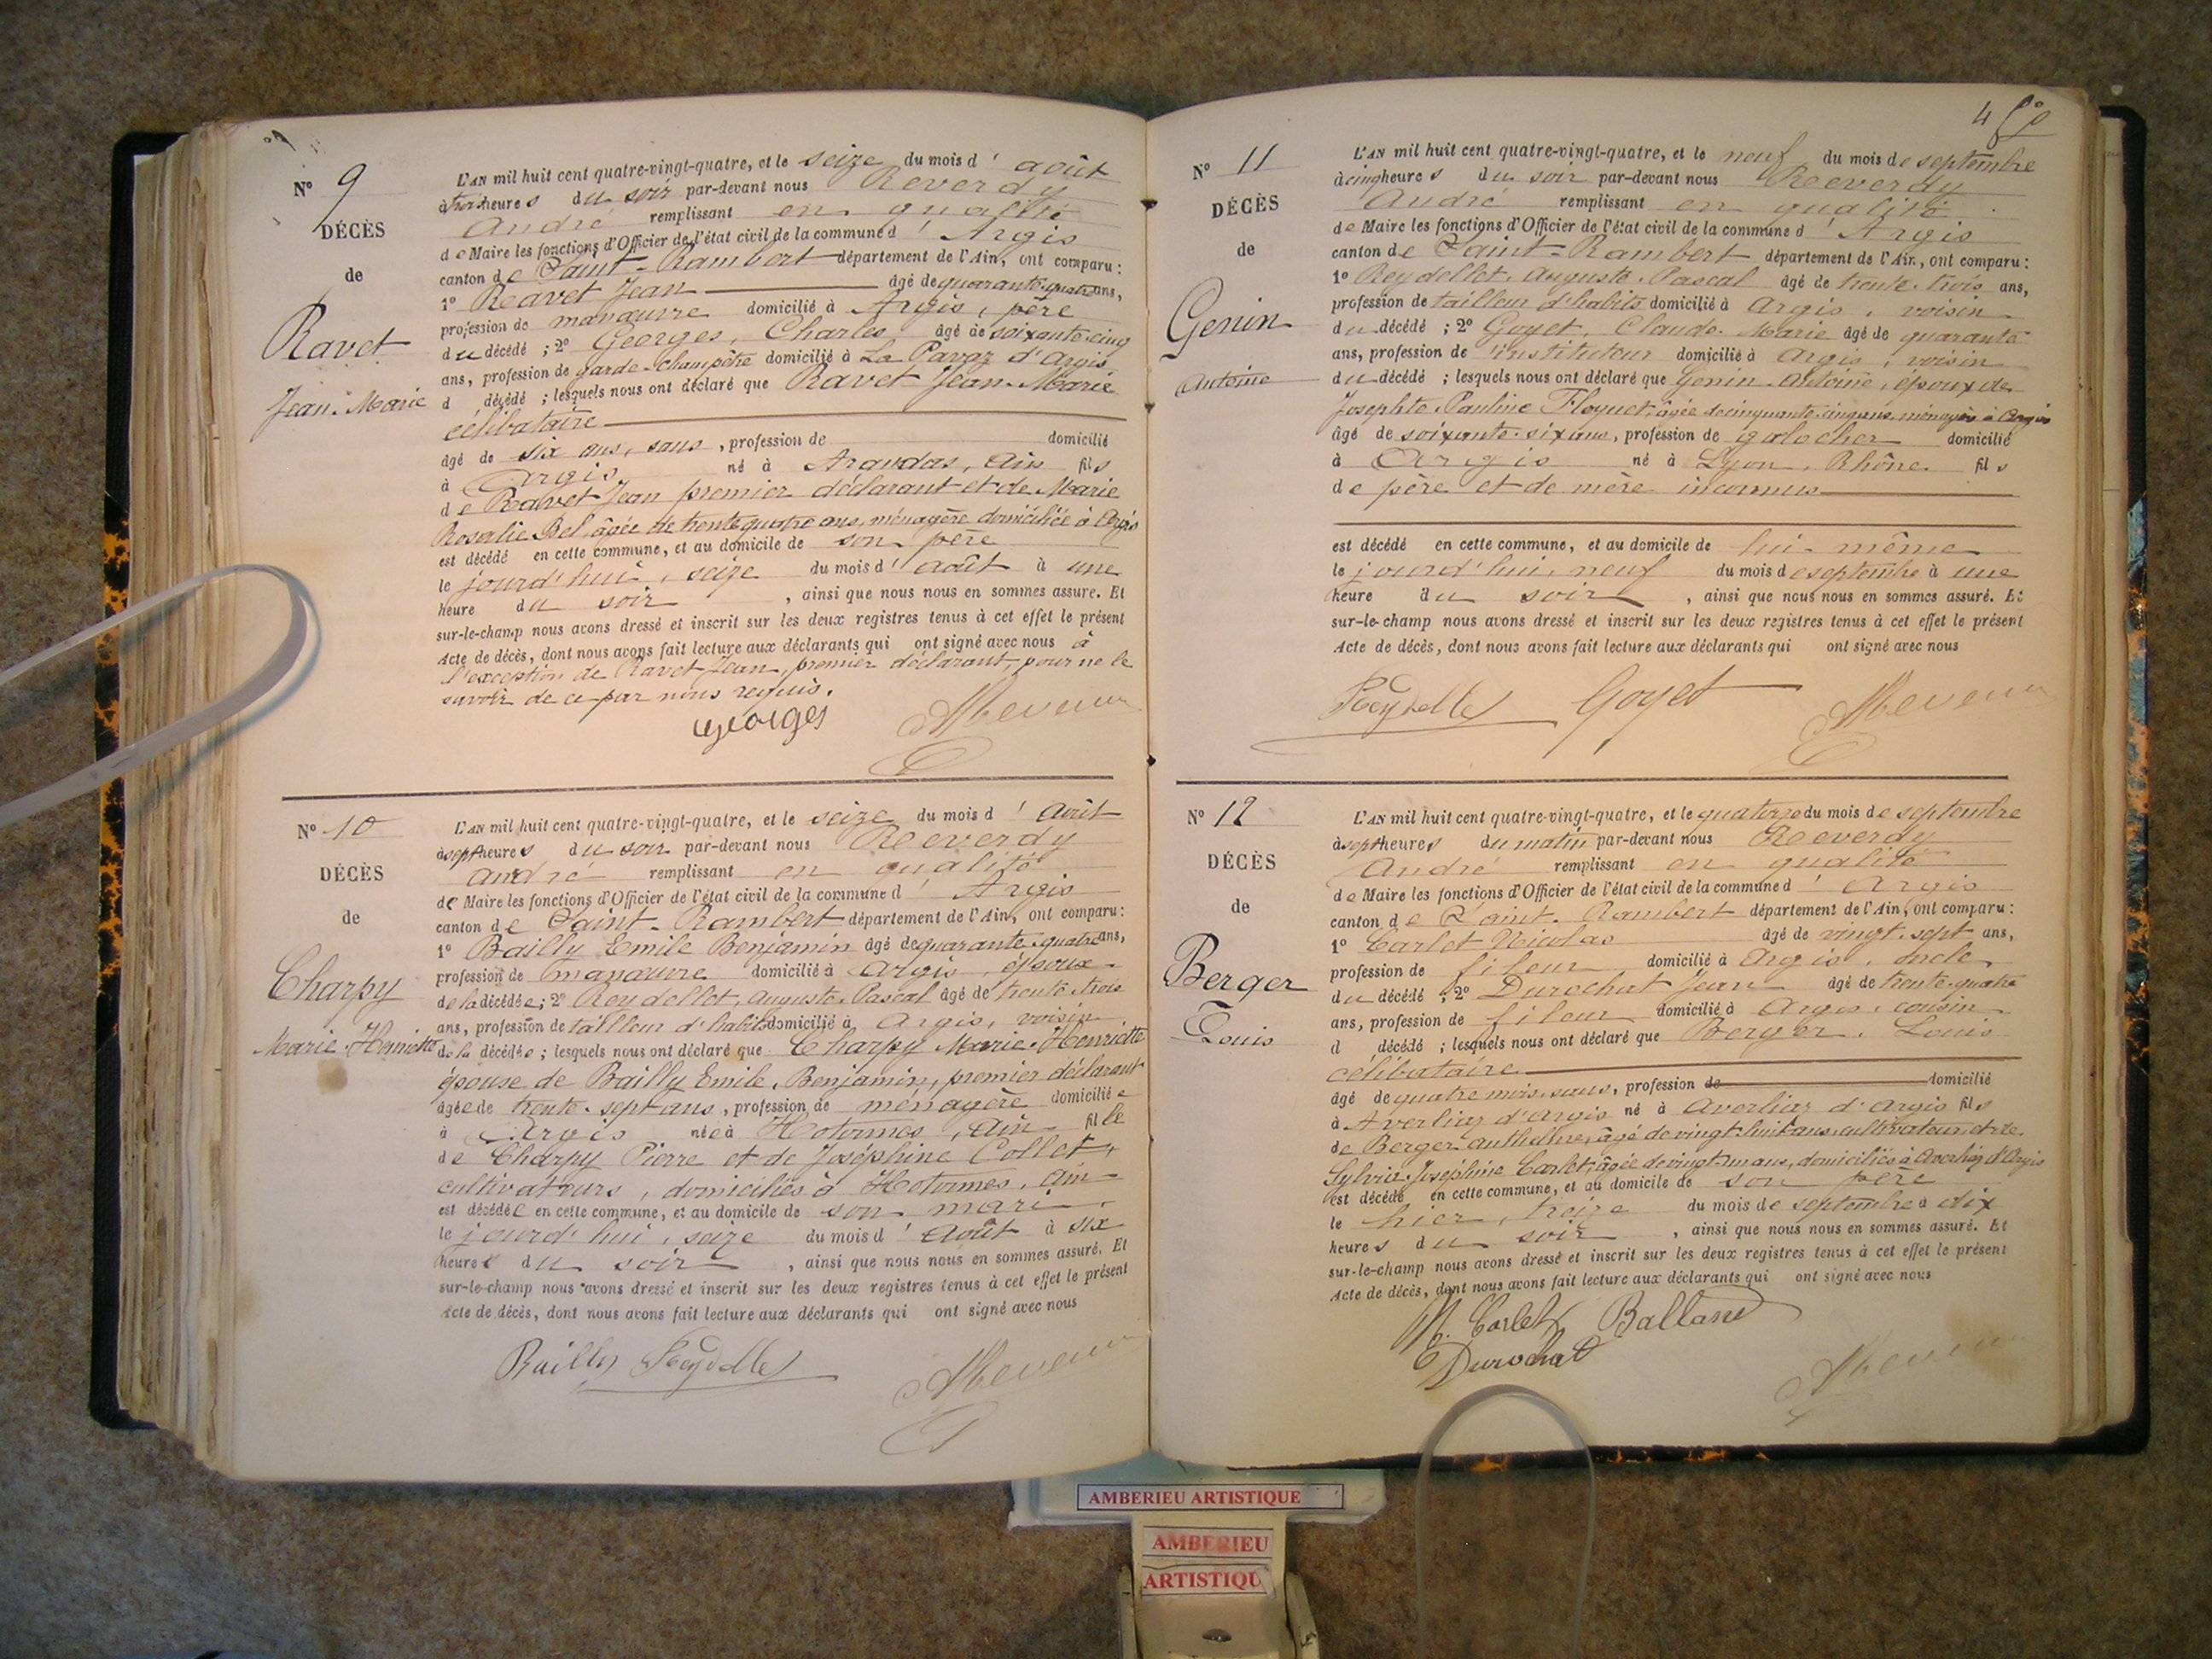 Nº 9
DÉCÈS
de
Ravet
Jean-Marie
L'AN mil huit cent quatre-vingt-quatre, et le seize du mois d'août
à trois heures du soir par-devant nous Reverdy
André remplissant en qualité
de Maire les fonctions d'Officier de l'état civil de la commune d'Argis
canton de Saint-Rambert département de l'Ain, ont comparu :
1º Ravet Jean âgé de quarante-quatre ans,
profession de manœuvre domicilié à Argis, père
du décédé ; 2º Georges, Charles âgé de soixante-cinq
ans, profession de garde-champêtre domicilié à La Pavaz d'Argis,
d décédé ; lesquels nous ont déclaré que Ravet Jean-Marie
célibataire
âgé de six ans, sans, profession de domicilié
à Argis né à Arandas, Ain fils
de Ravet Jean premier déclarant et de Marie
Rosalie Bel, âgée de trente quatre ans, ménagère domiciliée à Argis
est décédé en cette commune, et au domicile de son père
le jourd'hui, seize du mois d'Août à une
heure du soir, ainsi que nous nous en sommes assuré. Et
sur-le-champ nous avons dressé et inscrit sur les deux registres tenus à cet effet le présent
Acte de décès, dont nous avons fait lecture aux déclarants qui ont signé avec nous à
l'exception de Ravet Jean, premier déclarant, pour ne le
savoir de ce par nous requis.
Georges
Nº 10
DÉCÈS
de
Charpy
Marie-Henriette
L'AN mil huit cent quatre-vingt-quatre, et le seize du mois d'Août
à sept heures du soir par-devant nous Reverdy
André remplissant en qualité
de Maire les fonctions d'Officier de l'état civil de la commune d'Argis
canton de Saint-Rambert département de l'Ain, ont comparu :
1º Bailly Emile Benjamin âgé de quarante-quatre ans,
profession de manœuvre domicilié à Argis, époux
de la décédée ; 2º Reydellet, Auguste-Pascal âgé de trente-trois
ans, profession de tailleur d'habits domicilié à Argis, voisin
de la décédée ; lesquels nous ont déclaré que Charpy Marie-Henriette
épouse de Bailly Emile, Benjamin, premier déclarant
âgée de trente-sept ans, profession de ménagère domiciliée
à Argis née à Hotonnes, Ain fille
de Charpy Pierre et de Joséphine Collet,
cultivateurs, domiciliés à Hotonnes, Ain
est décédée en cette commune, et au domicile de son mari,
le jourd'hui, seize du mois d'Août à six
heures du soir, ainsi que nous nous en sommes assuré. Et
sur-le-champ nous avons dressé et inscrit sur les deux registres tenus à cet effet le présent
Acte de décès, dont nous avons fait lecture aux déclarants qui ont signé avec nous
Bailly Reydellet
Nº 11
DÉCÈS
de
Genin
Antoine
L'AN mil huit cent quatre-vingt-quatre, et le neuf du mois de septembre
à cinq heures du soir par-devant nous Reverdy
André remplissant en qualité
de Maire les fonctions d'Officier de l'état civil de la commune d'Argis
canton de Saint-Rambert département de l'Ain, ont comparu :
1º Reydellet, Auguste-Pascal âgé de trente-trois ans,
profession de tailleur d'habits domicilié à Argis, voisin
du décédé ; 2º Goyet, Claude-Marie âgé de quarante
ans, profession de instituteur domicilié à Argis, voisin
du décédé ; lesquels nous ont déclaré que Genin-Antoine, époux de
Josephte-Pauline Floquet, âgée de cinquante-cinq ans, ménagère à Argis
âgé de soixante-six ans, profession de galocher domicilié
à Argis né à Lyon, Rhône fils
de père et de mère inconnus
est décédé en cette commune, et au domicile de lui-même
le jourd'hui, neuf du mois de septembre à une
heure du soir, ainsi que nous nous en sommes assuré. Et
sur-le-champ nous avons dressé et inscrit sur les deux registres tenus à cet effet le présent
Acte de décès, dont nous avons fait lecture aux déclarants qui ont signé avec nous
Reydellet Goyet
Nº 12
DÉCÈS
de
Berger
Louis
L'AN mil huit cent quatre-vingt-quatre, et le quatorze du mois de septembre
à sept heures du matin par-devant nous Reverdy
André remplissant en qualité
de Maire les fonctions d'Officier de l'état civil de la commune d'Argis
canton de Saint-Rambert département de l'Ain, ont comparu :
1º Carlet Nicolas âgé de vingt-sept ans,
profession de fileur domicilié à Argis, oncle
du décédé ; 2º Durochat Jean âgé de trente-quatre
ans, profession de fileur domicilié à Argis, cousin
d décédé ; lesquels nous ont déclaré que Berger, Louis
célibataire
âgé de quatre mois, sans, profession de domicilié
à Averliaz d'Argis né à Averliaz d'Argis fils
de Berger Anthelme, âgé de vingt-huit ans, cultivateur, et de
Sylvie-Joséphine Carlet, âgée de vingt-un ans, domiciliés à Averliaz d'Argis
est décédé en cette commune, et au domicile de son père
le hier, treize du mois de septembre à dix
heures du soir, ainsi que nous nous en sommes assuré. Et
sur-le-champ nous avons dressé et inscrit sur les deux registres tenus à cet effet le présent
Acte de décès, dont nous avons fait lecture aux déclarants qui ont signé avec nous
N. Carlet Balland
Durochat
AMBERIEU ARTISTIQUE
AMBERIEU
ARTISTIQU